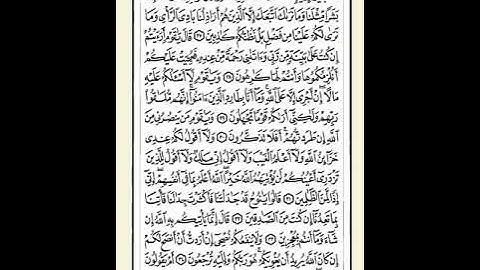 بَشَرًا مِّثْلَنَا وَمَا نَرَىٰكَ ٱتَّبَعَكَ إِلَّا ٱلَّذِينَ هُمْ أَرَاذِلُنَا بَادِىَ ٱلرَّأْىِ وَمَا
نَرَىٰ لَكُمْ عَلَيْنَا مِن فَضْلٍۭ بَلْ نَظُنُّكُمْ كَٰذِبِينَ ٢٧ قَالَ يَٰقَوْمِ أَرَءَيْتُمْ
إِن كُنتُ عَلَىٰ بَيِّنَةٍ مِّن رَّبِّى وَءَاتَىٰنِى رَحْمَةً مِّنْ عِندِهِۦ فَعُمِّيَتْ عَلَيْكُمْ
أَنُلْزِمُكُمُوهَا وَأَنتُمْ لَهَا كَٰرِهُونَ ٢٨ وَيَٰقَوْمِ لَآ أَسْـَٔلُكُمْ عَلَيْهِ
مَالًا إِنْ أَجْرِىَ إِلَّا عَلَى ٱللَّهِ وَمَآ أَنَا۠ بِطَارِدِ ٱلَّذِينَ ءَامَنُوٓا۟ إِنَّهُم مُّلَٰقُوا۟
رَبِّهِمْ وَلَٰكِنِّىٓ أَرَىٰكُمْ قَوْمًا تَجْهَلُونَ ٢٩ وَيَٰقَوْمِ مَن يَنصُرُنِى مِنَ
ٱللَّهِ إِن طَرَدتُّهُمْ أَفَلَا تَذَكَّرُونَ ٣٠ وَلَآ أَقُولُ لَكُمْ عِندِى
خَزَآئِنُ ٱللَّهِ وَلَآ أَعْلَمُ ٱلْغَيْبَ وَلَآ أَقُولُ إِنِّى مَلَكٌ وَلَآ أَقُولُ لِلَّذِينَ
تَزْدَرِىٓ أَعْيُنُكُمْ لَن يُؤْتِيَهُمُ ٱللَّهُ خَيْرًا ٱللَّهُ أَعْلَمُ بِمَا فِىٓ أَنفُسِهِمْ إِنِّىٓ
إِذًا لَّمِنَ ٱلظَّٰلِمِينَ ٣١ قَالُوا۟ يَٰنُوحُ قَدْ جَٰدَلْتَنَا فَأَكْثَرْتَ جِدَٰلَنَا فَأْتِنَا
بِمَا تَعِدُنَآ إِن كُنتَ مِنَ ٱلصَّٰدِقِينَ ٣٢ قَالَ إِنَّمَا يَأْتِيكُم بِهِ ٱللَّهُ إِن
شَآءَ وَمَآ أَنتُم بِمُعْجِزِينَ ٣٣ وَلَا يَنفَعُكُمْ نُصْحِىٓ إِنْ أَرَدتُّ أَنْ أَنصَحَ لَكُمْ
إِن كَانَ ٱللَّهُ يُرِيدُ أَن يُغْوِيَكُمْ هُوَ رَبُّكُمْ وَإِلَيْهِ تُرْجَعُونَ ٣٤ أَمْ يَقُولُونَ